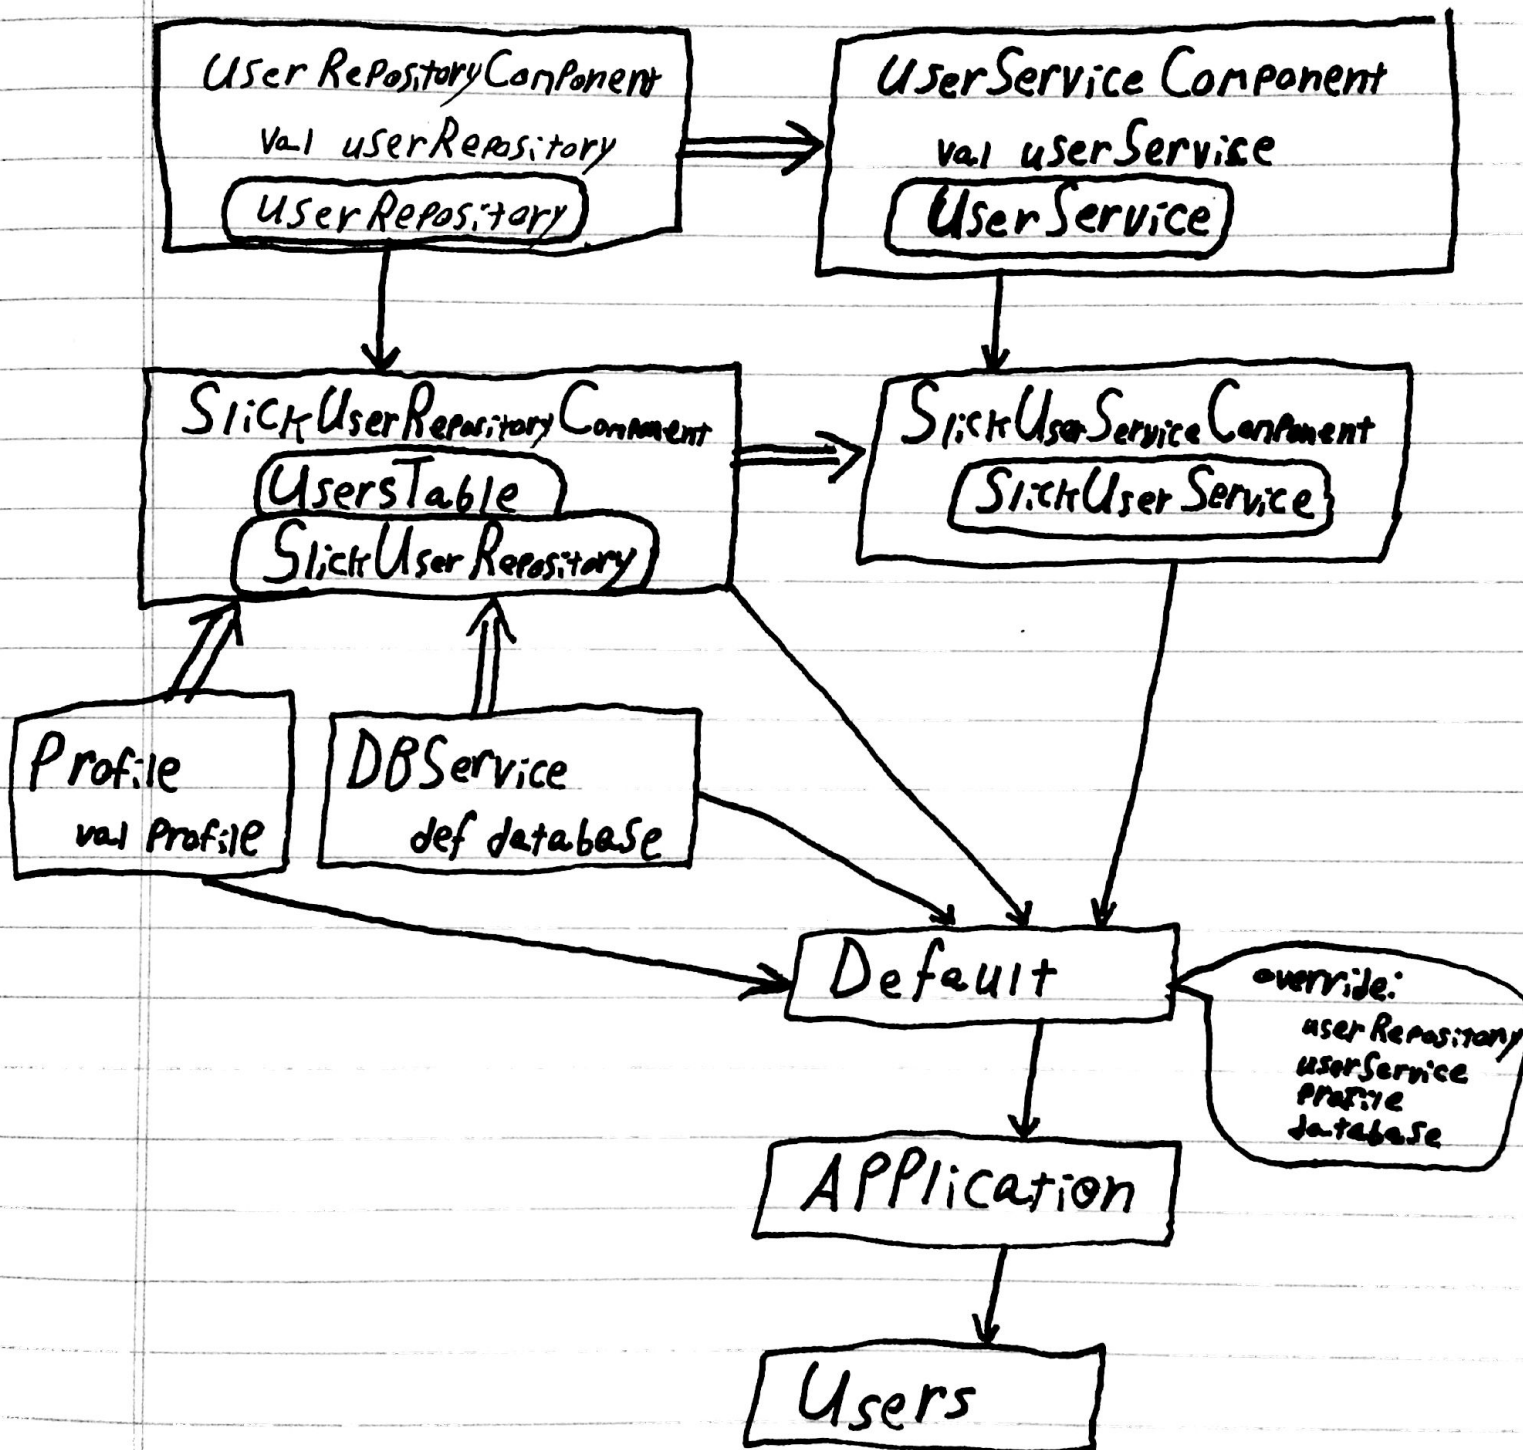 UserRepositoryComponent
val userRepository
UserRepository
UserServiceComponent
val userService
UserService
SlickUserRepositoryComponent
UsersTable
SlickUserRepository
SlickUserServiceComponent
SlickUserService
Profile
val profile
DBService
def database
Default
override:
userRepository
userService
profile
database
Application
Users